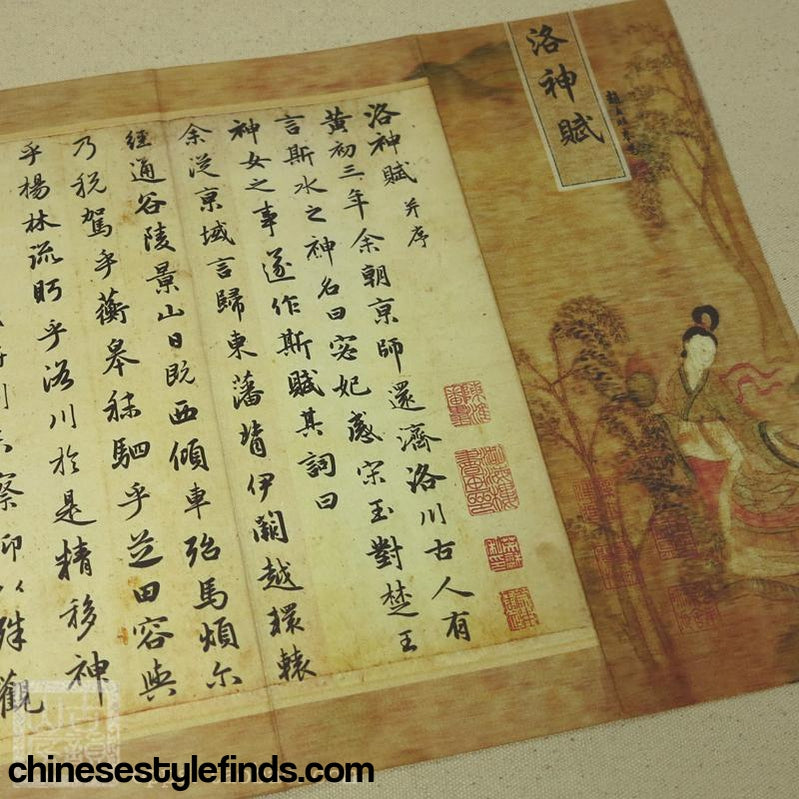 洛神賦
洛神賦 并序
黃初三年余朝亰師還濟洛川古人有
言斯水之神名曰宓妃感宋玉對楚王
神女之事遂作斯賦其詞曰
余従亰域言歸東藩背伊闕越轘轅
經通谷陵景山日既西傾車殆馬煩尔
乃稅駕乎蘅皋秣駟乎芝田容與
乎楊林流眄乎洛川於是精移神
則未察仰以殊觀
chinesestylefinds.com